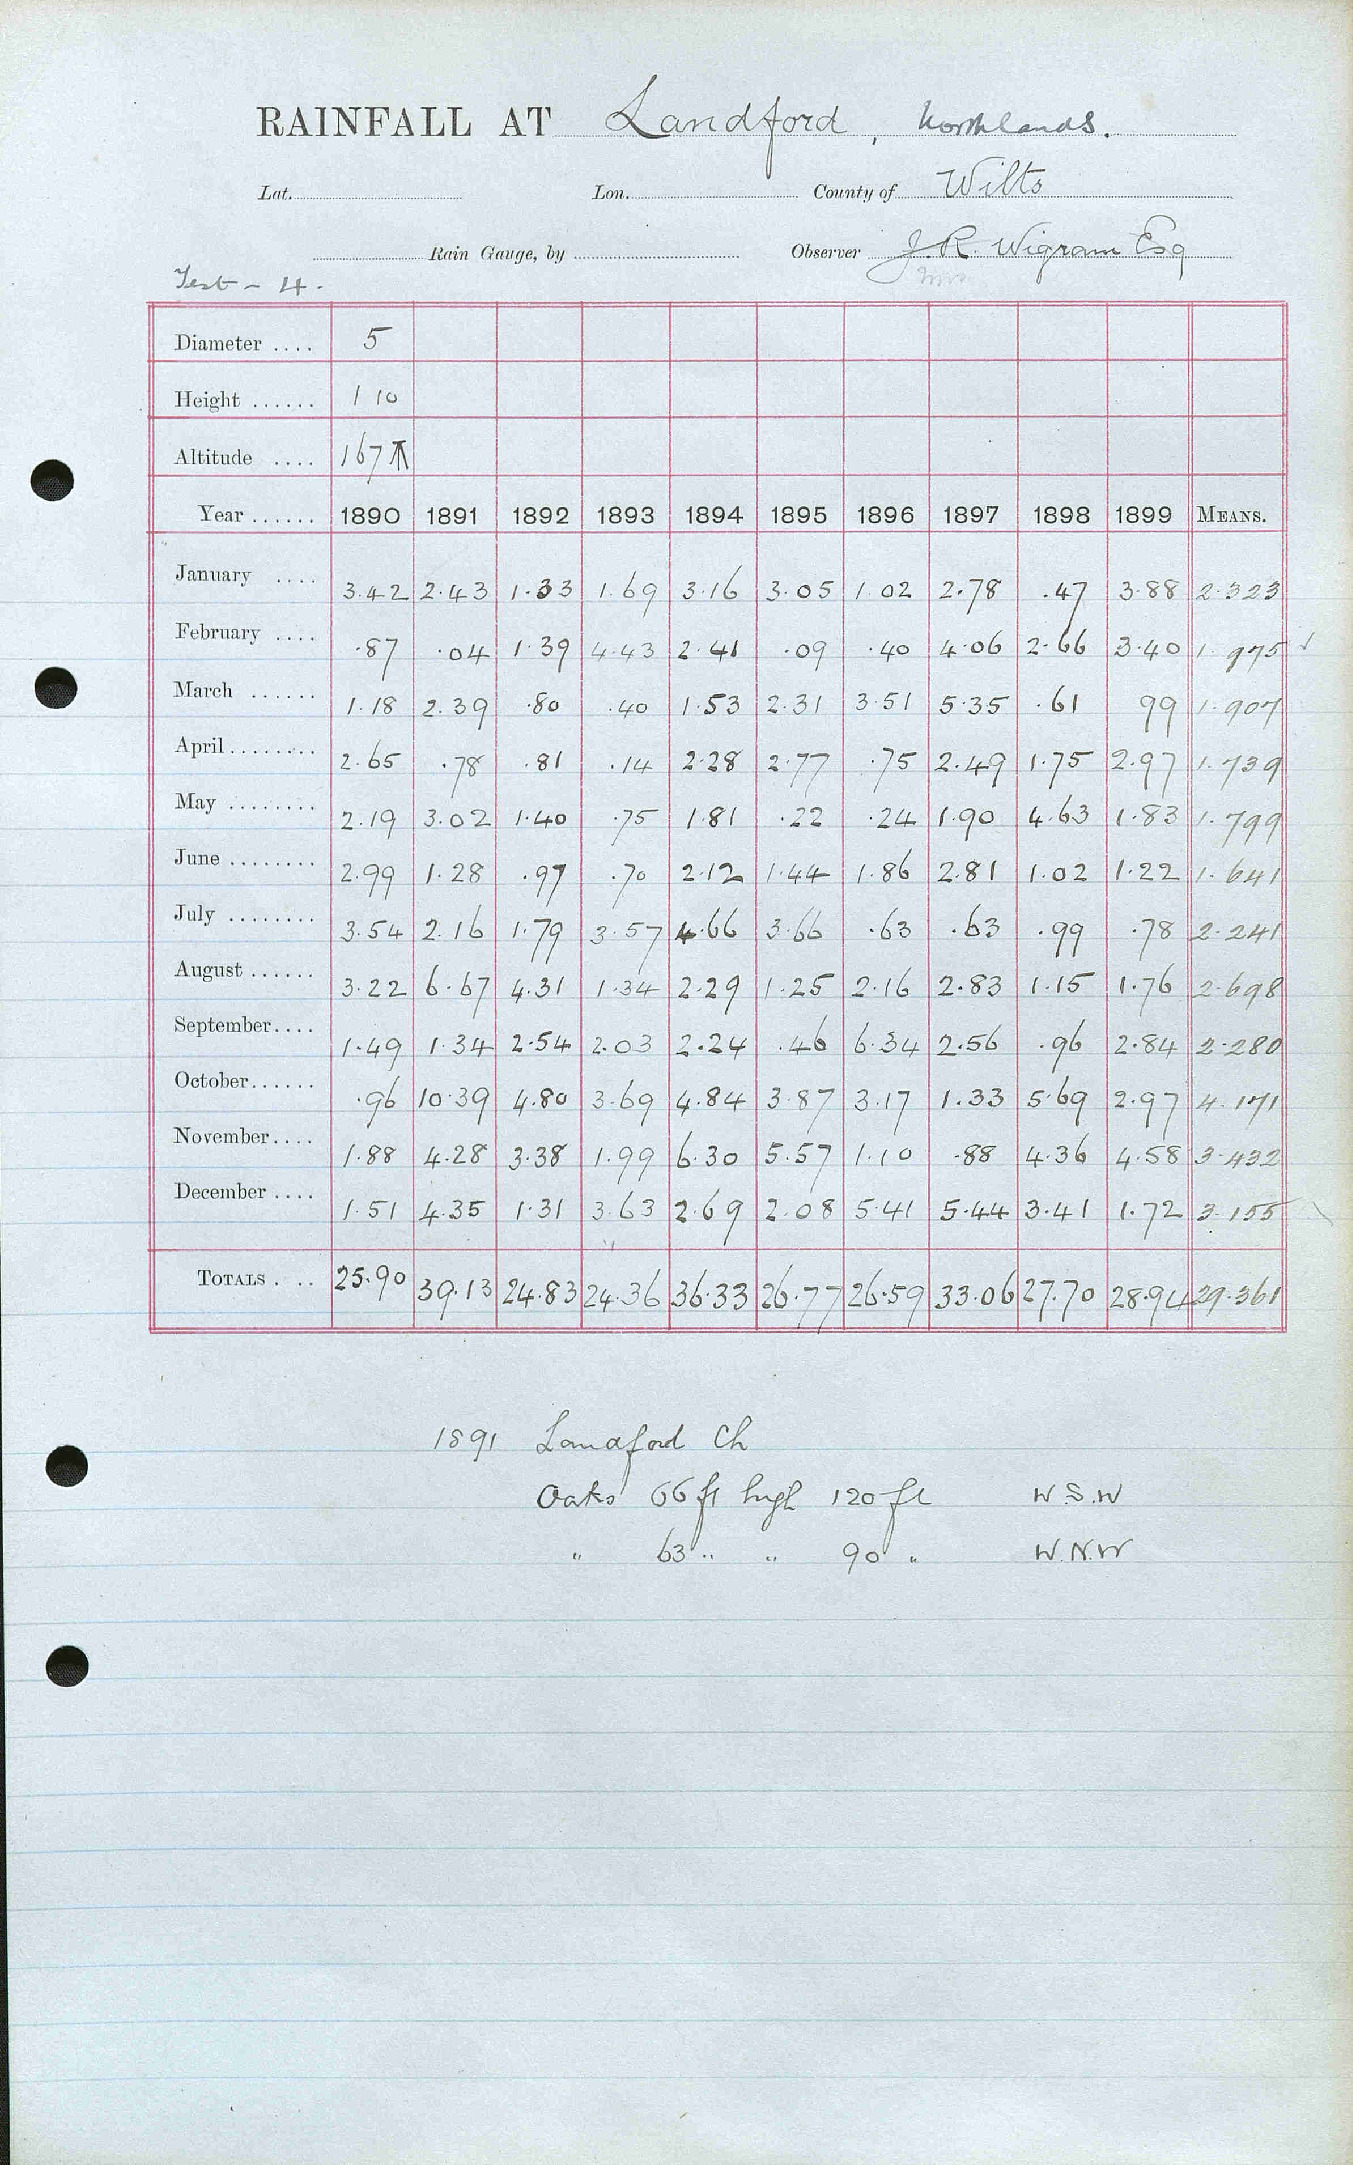 RAINFALL AT Landford, Northlands.
Lat. Lon. County of Wilts
Rain Gauge, by Observer J. R. Wigram Esq
Mrs
Test - 4.
Diameter .... 5
Height ...... 1 10
Altitude .... 167
Year ...... 1890 1891 1892 1893 1894 1895 1896 1897 1898 1899 MEANS.
January .... 3.42 2.43 1.33 1.69 3.16 3.05 1.02 2.78 .47 3.88 2.323
February .... .87 .04 1.39 4.43 2.41 .09 .40 4.06 2.66 3.40 1.975
March ...... 1.18 2.39 .80 .40 1.53 2.31 3.51 5.35 .61 99 1.907
April ........ 2.65 .78 .81 .14 2.28 2.77 .75 2.49 1.75 2.97 1.739
May ........ 2.19 3.02 1.40 .75 1.81 .22 .24 1.90 4.63 1.83 1.799
June ........ 2.99 1.28 .97 .70 2.12 1.44 1.86 2.81 1.02 1.22 1.641
July ........ 3.54 2.16 1.79 3.57 4.66 3.66 .63 .63 .99 .78 2.241
August ...... 3.22 6.67 4.31 1.34 2.29 1.25 2.16 2.83 1.15 1.76 2.698
September.... 1.49 1.34 2.54 2.03 2.24 .46 6.34 2.56 .96 2.84 2.280
October...... .96 10.39 4.80 3.69 4.84 3.87 3.17 1.33 5.69 2.97 4.171
November.... 1.88 4.28 3.38 1.99 6.30 5.57 1.10 .88 4.36 4.58 3.432
December .... 1.51 4.35 1.31 3.63 2.69 2.08 5.41 5.44 3.41 1.72 3.155
TOTALS . .. 25.90 39.13 24.83 24.36 36.33 26.77 26.59 33.06 27.70 28.94 29.361
1891 Landford Ch
Oaks 66 ft high 120 ft W.S.W
" 63 " " 90 " W.N.W